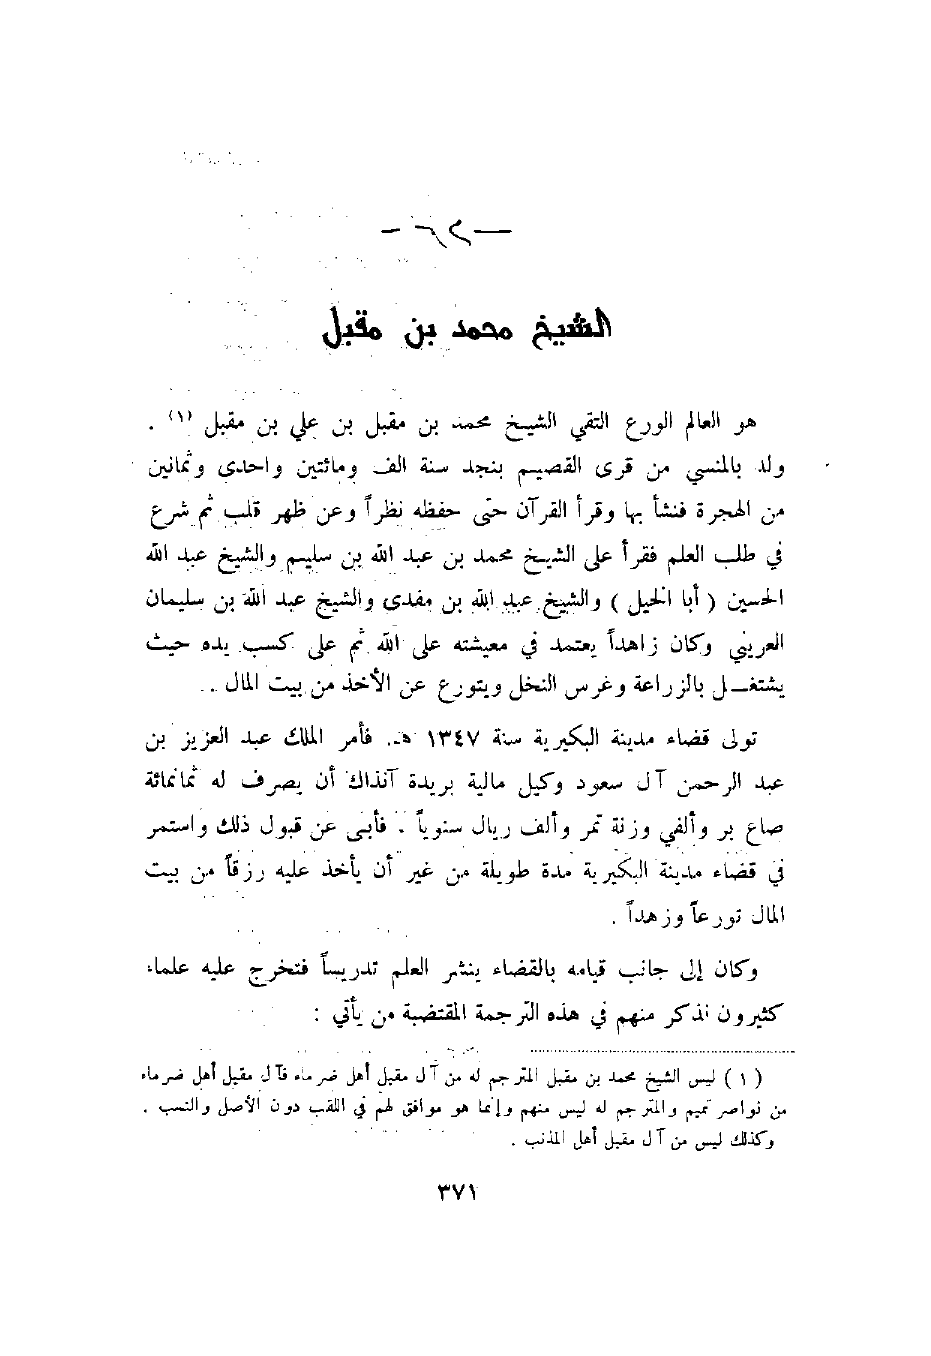 الشيخ محمد بن مقبل
هو العالم الورع التقي الشيخ محمد بن مقبل بن علي بن مقبل (١) .
ولد بالمنسي من قرى القصيم بنجد سنة الف ومائتين واحدى وثمانين
من الهجرة فنشأ بها وقرأ القرآن حتى حفظه نظراً وعن ظهر قلب ثم شرع
في طلب العلم فقرأ على الشيخ محمد بن عبد الله بن سليم والشيخ عبد الله
الحسين ( أبا الخيل ) والشيخ عبد الله بن مفدى والشيخ عبد الله بن سليمان
العريني وكان زاهداً يعتمد في معيشته على الله ثم على كسب يده حيث
يشتغـل بالزراعة وغرس النخل ويتورع عن الأخذ من بيت المال ..
تولى قضاء مدينة البكيرية سنة ١٣٤٧ هـ. فأمر الملك عبد العزيز بن
عبد الرحمن آل سعود وكيل مالية بريدة آنذاك أن يصرف له ثمانمائة
صاع بر وألفي وزنة تمر وألف ريال سنوياً . فأبى عن قبول ذلك واستمر
في قضاء مدينة البكيرية مدة طويلة من غير أن يأخذ عليه رزقاً من بيت
المال تورعاً وزهداً .
وكان إلى جانب قيامه بالقضاء ينشر العلم تدريساً فتخرج عليه علماء
كثيرون نذكر منهم في هذه الترجمة المقتضبة من يأتي :
( ١ ) ليس الشيخ محمد بن مقبل المترجم له من آل مقبل أهل ضرماء فآل مقبل أهل ضرماء
من نواصر تميم والمترجم له ليس منهم وإنما هو موافق لهم في اللقب دون الأصل والنسب .
وكذلك ليس من آل مقبل أهل المذنب .
٣٧١